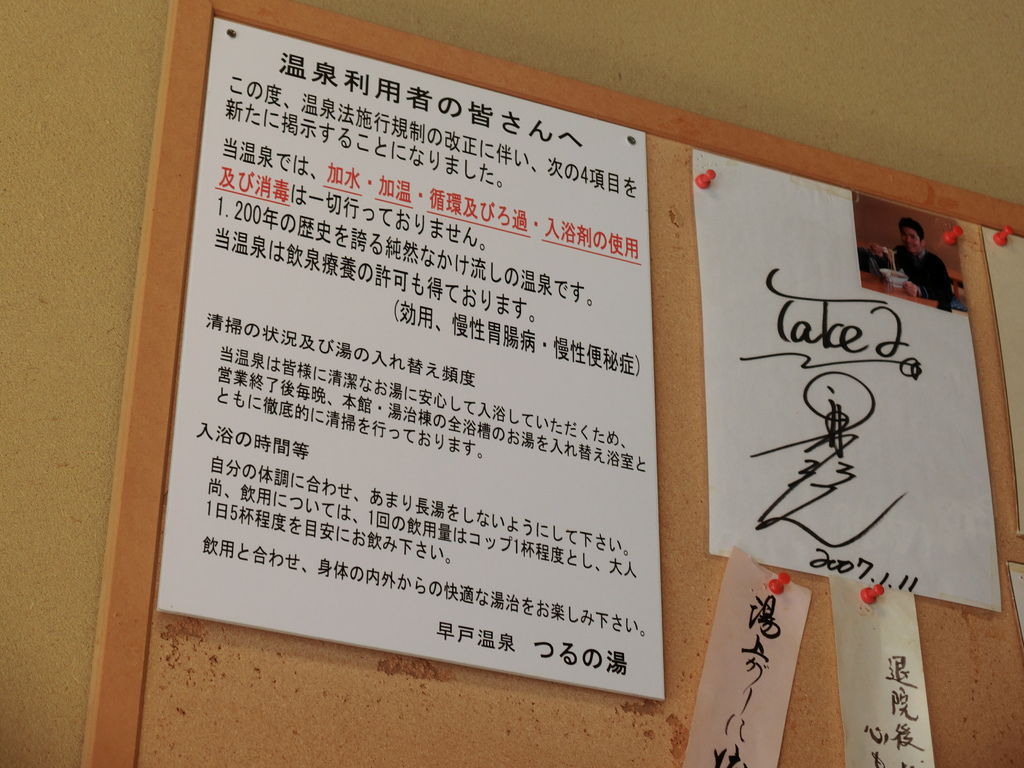 温泉利用者の皆さんへ
この度、温泉法施行規制の改正に伴い、次の4項目を
新たに掲示することになりました。
当温泉では、加水・加温・循環及びろ過・入浴剤の使用
及び消毒は一切行っておりません。
1.200年の歴史を誇る純然なかけ流しの温泉です。
当温泉は飲泉療養の許可も得ております。
(効用、慢性胃腸病・慢性便秘症)
清掃の状況及び湯の入れ替え頻度
当温泉は皆様に清潔なお湯に安心して入浴していただくため、
営業終了後毎晩、本館・湯治棟の全浴槽のお湯を入れ替え浴室と
ともに徹底的に清掃を行っております。
入浴の時間等
自分の体調に合わせ、あまり長湯をしないようにして下さい。
尚、飲用については、1回の飲用量はコップ1杯程度とし、大人
1日5杯程度を目安にお飲み下さい。
飲用と合わせ、身体の内外からの快適な湯治をお楽しみ下さい。
早戸温泉 つるの湯
Take2
2007.1.11
湯上がりに
退院後
心